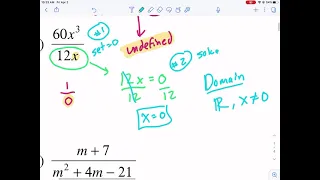 60x³
12x
#1
set=0
undefined
1
0
12x = 0
12 12
x=0
#2 solve
Domain
ℝ, x≠0
)
m + 7
m² + 4m − 21